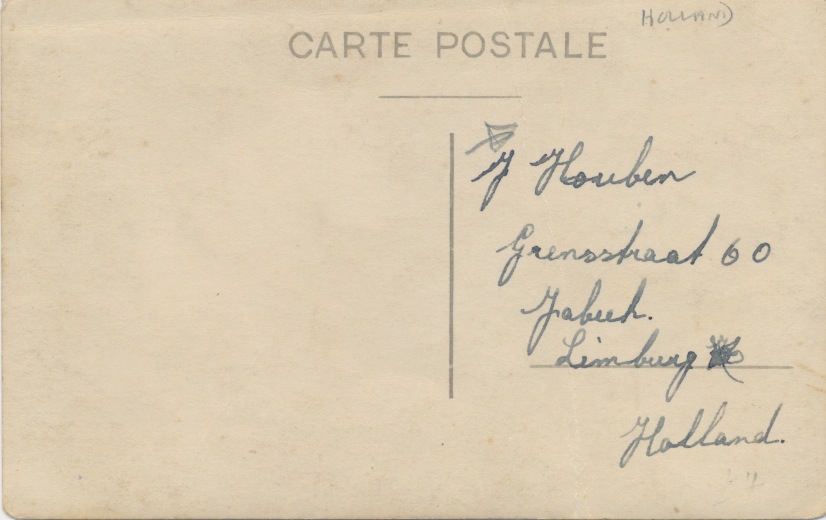 HOLLAND
CARTE POSTALE
J Houben
Grensstraat 60
Jabeek.
Limburg
Holland.